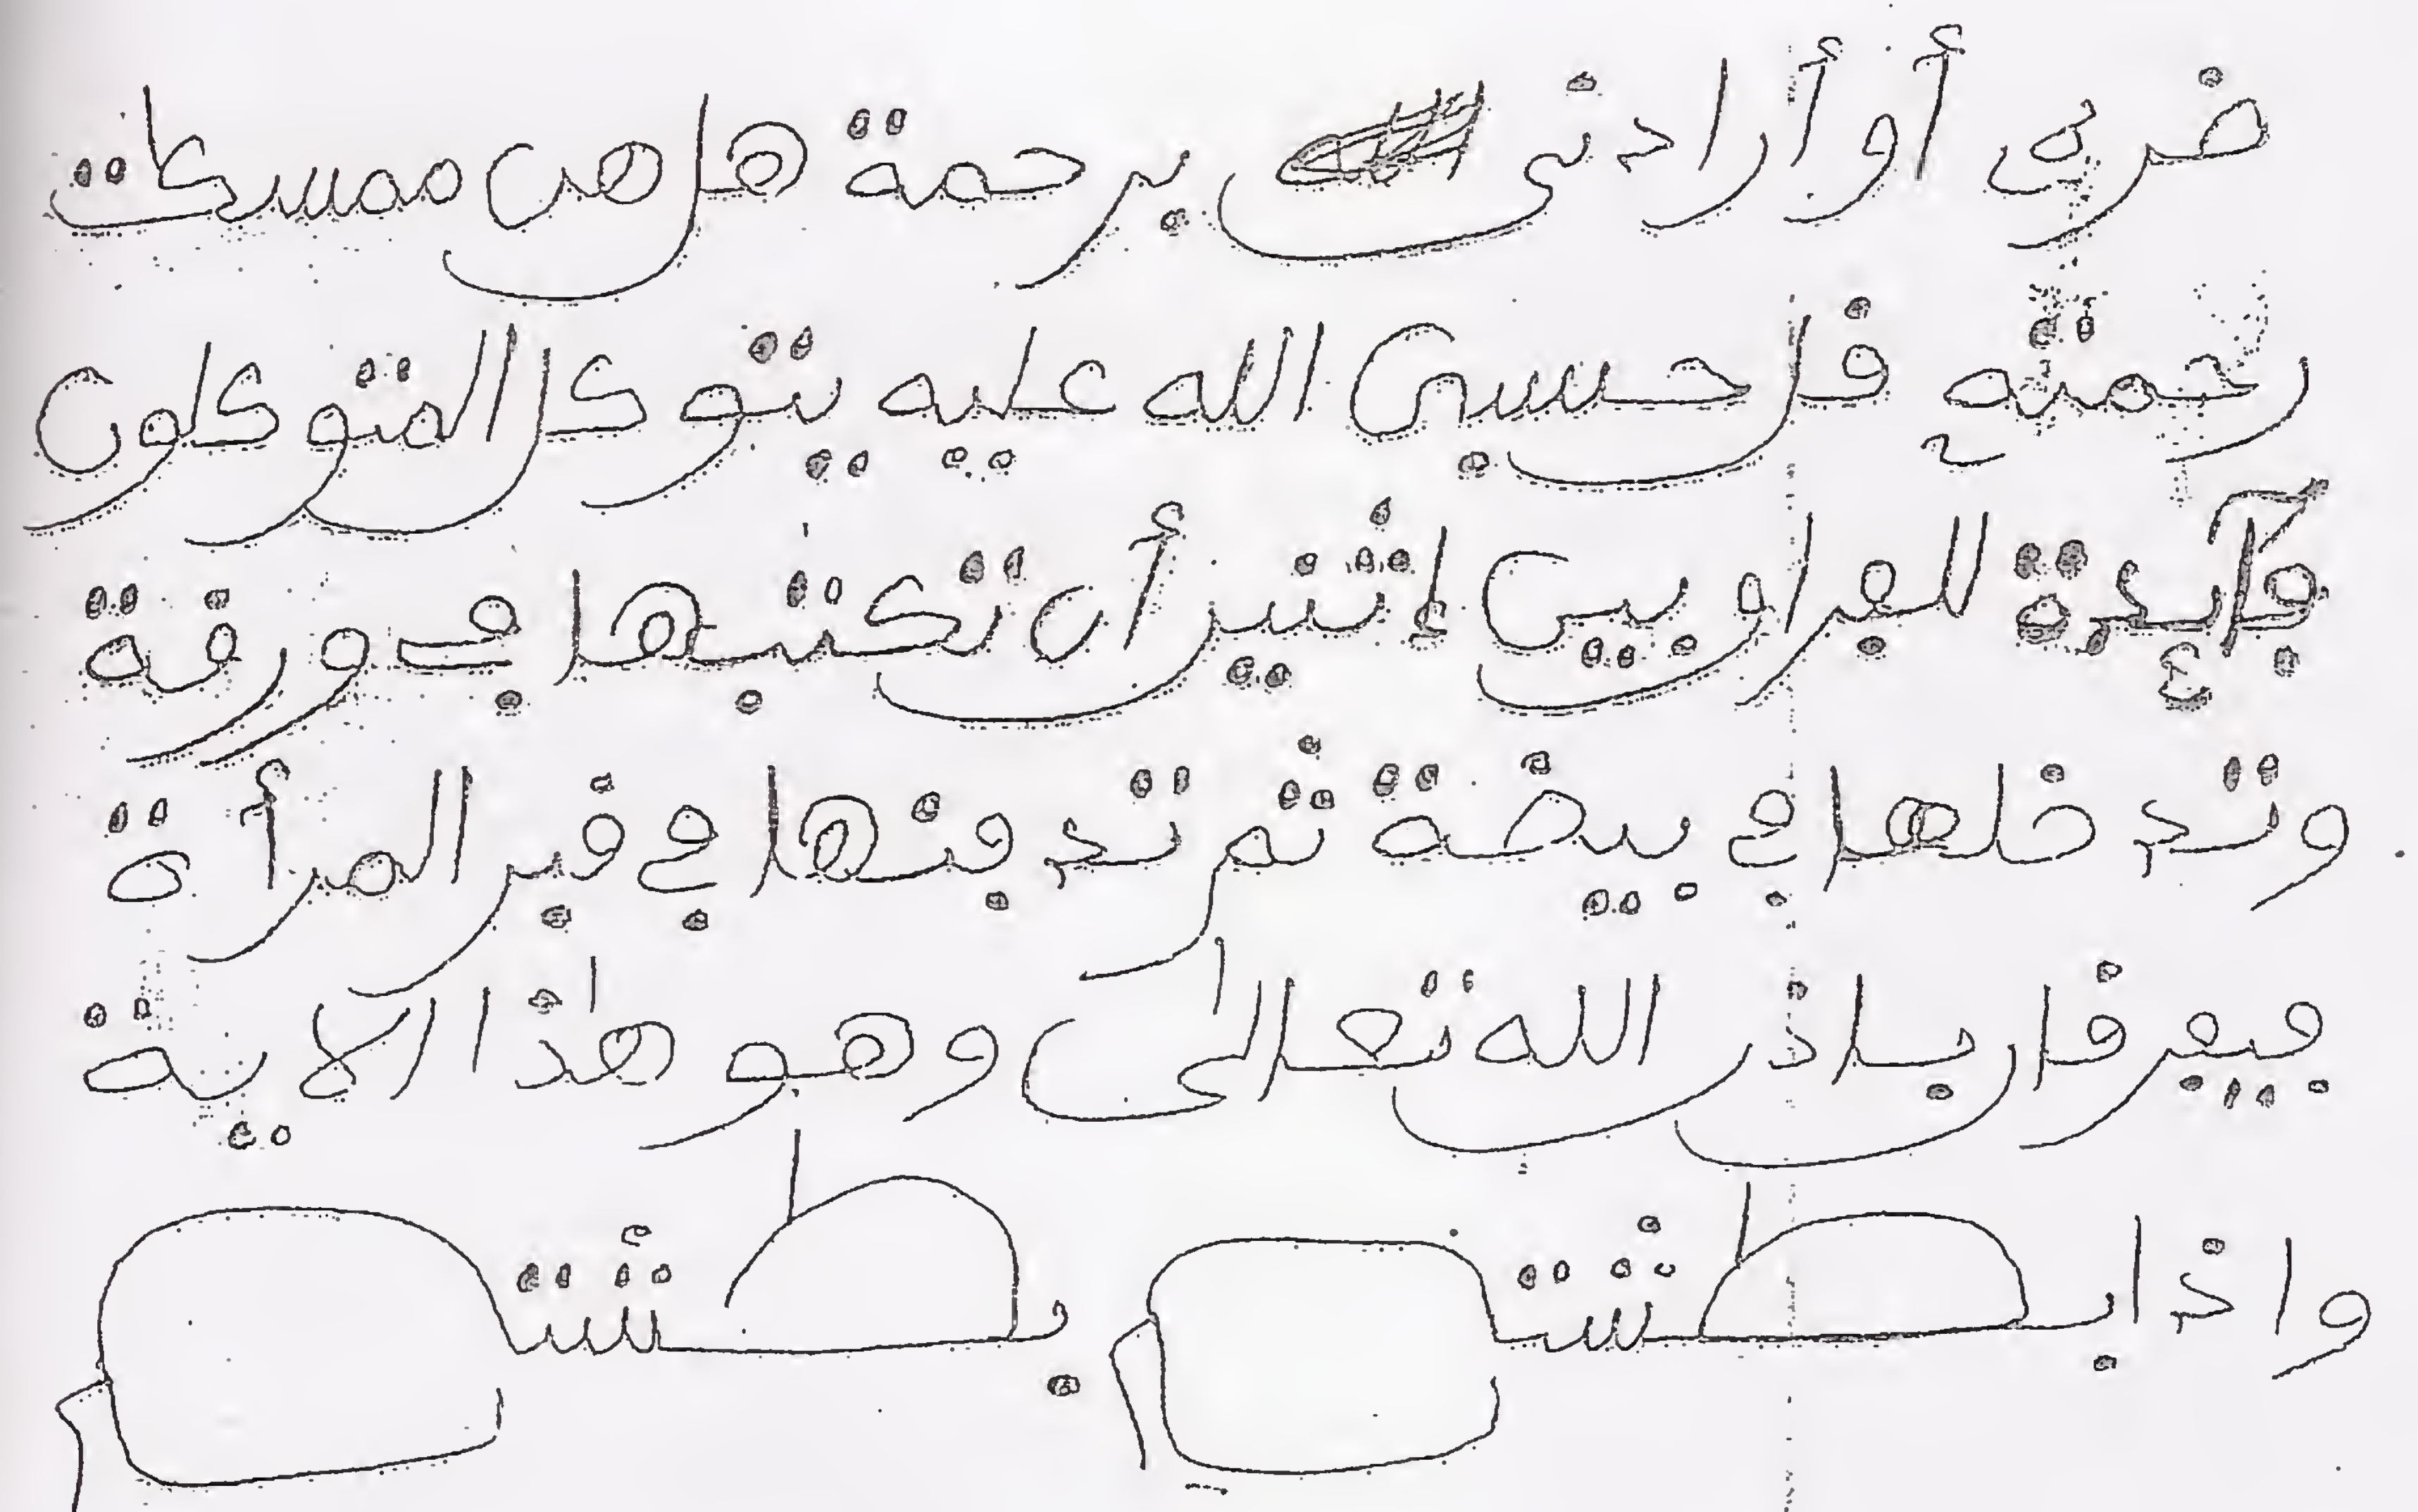 ضره أو أرادنى برحمة هل هن ممسكت
رحمته قل حسبي الله عليه يتوكل المتوكلون
فآئدة للفراق بين إثنين أن تكتبها في ورقة
وتدخلها في بيضة ثم تدفنها في قبر المرأة
فيفرقان باذن الله تعالى وهو هذا الاية
واذا بطشتم بطشتم